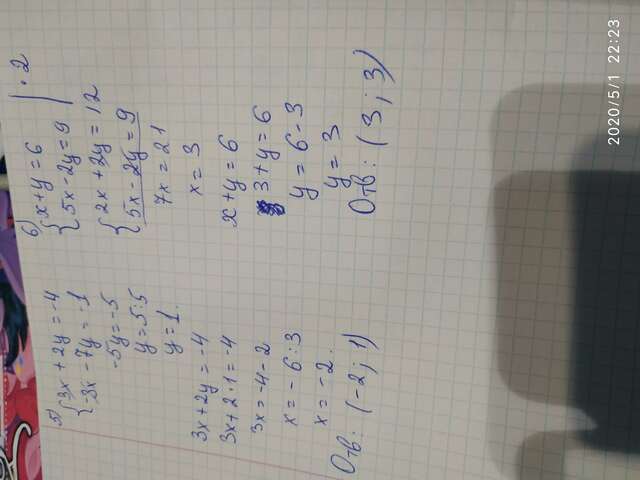 5) {3x + 2y = -4
{-3x - 7y = -1
-5y = -5
y = 5:5
y = 1.
3x + 2y = -4
3x + 2·1 = -4
3x = -4 - 2
x = -6:3
x = -2.
Отв: (-2; 1)
6) {x + y = 6 | ·2
{5x - 2y = 9
{2x + 2y = 12
{5x - 2y = 9
7x = 21
x = 3
x + y = 6
3 + y = 6
y = 6 - 3
y = 3
Отв: (3; 3)
2020/5/1 22:23